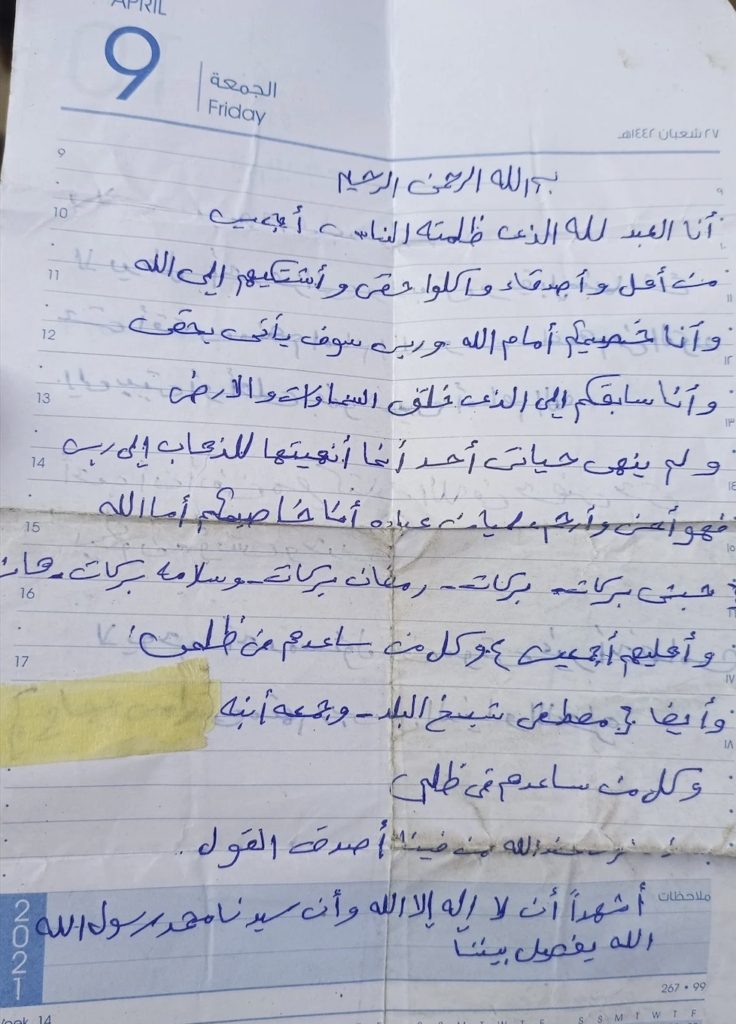 APRIL
9
الجمعة
Friday
٢٧ شعبان ١٤٤٢هـ
بسم الله الرحمن الرحيم
أنا العبد لله الذى ظلمته الناس أجمعين
من أهل وأصدقاء واكلوا حقى وأشتكيهم إلى الله
وأنا خصيمكم أمام الله وربى سوف يأتى بحقى
وأنا سابقكم إلى الذى خلق السماوات والارض
ولم ينهى حياتى أحد أنما أنهيتها للذهاب إلى ربى
فهو أحن وأرحم من عباده أنا خاصيمكم أما الله
بركات - رمضان بركات - وسلامه بركات -
وأهليهم أجمعين وكل من ساعدهم من ظلمى
وأيضا مصطفى شيخ البلد - وجمعه أبنه
وكل من ساعدهم فى ظلمى
الله من فينا أصدق القول
ملاحظات
أشهداً أن لا إله إلا الله وأن سيدنا محمد رسول الله
الله يفصل بيننا
9
10
11
12
13
14
15
16
17
2021
267 • 99
Week 14
S S M T W T F